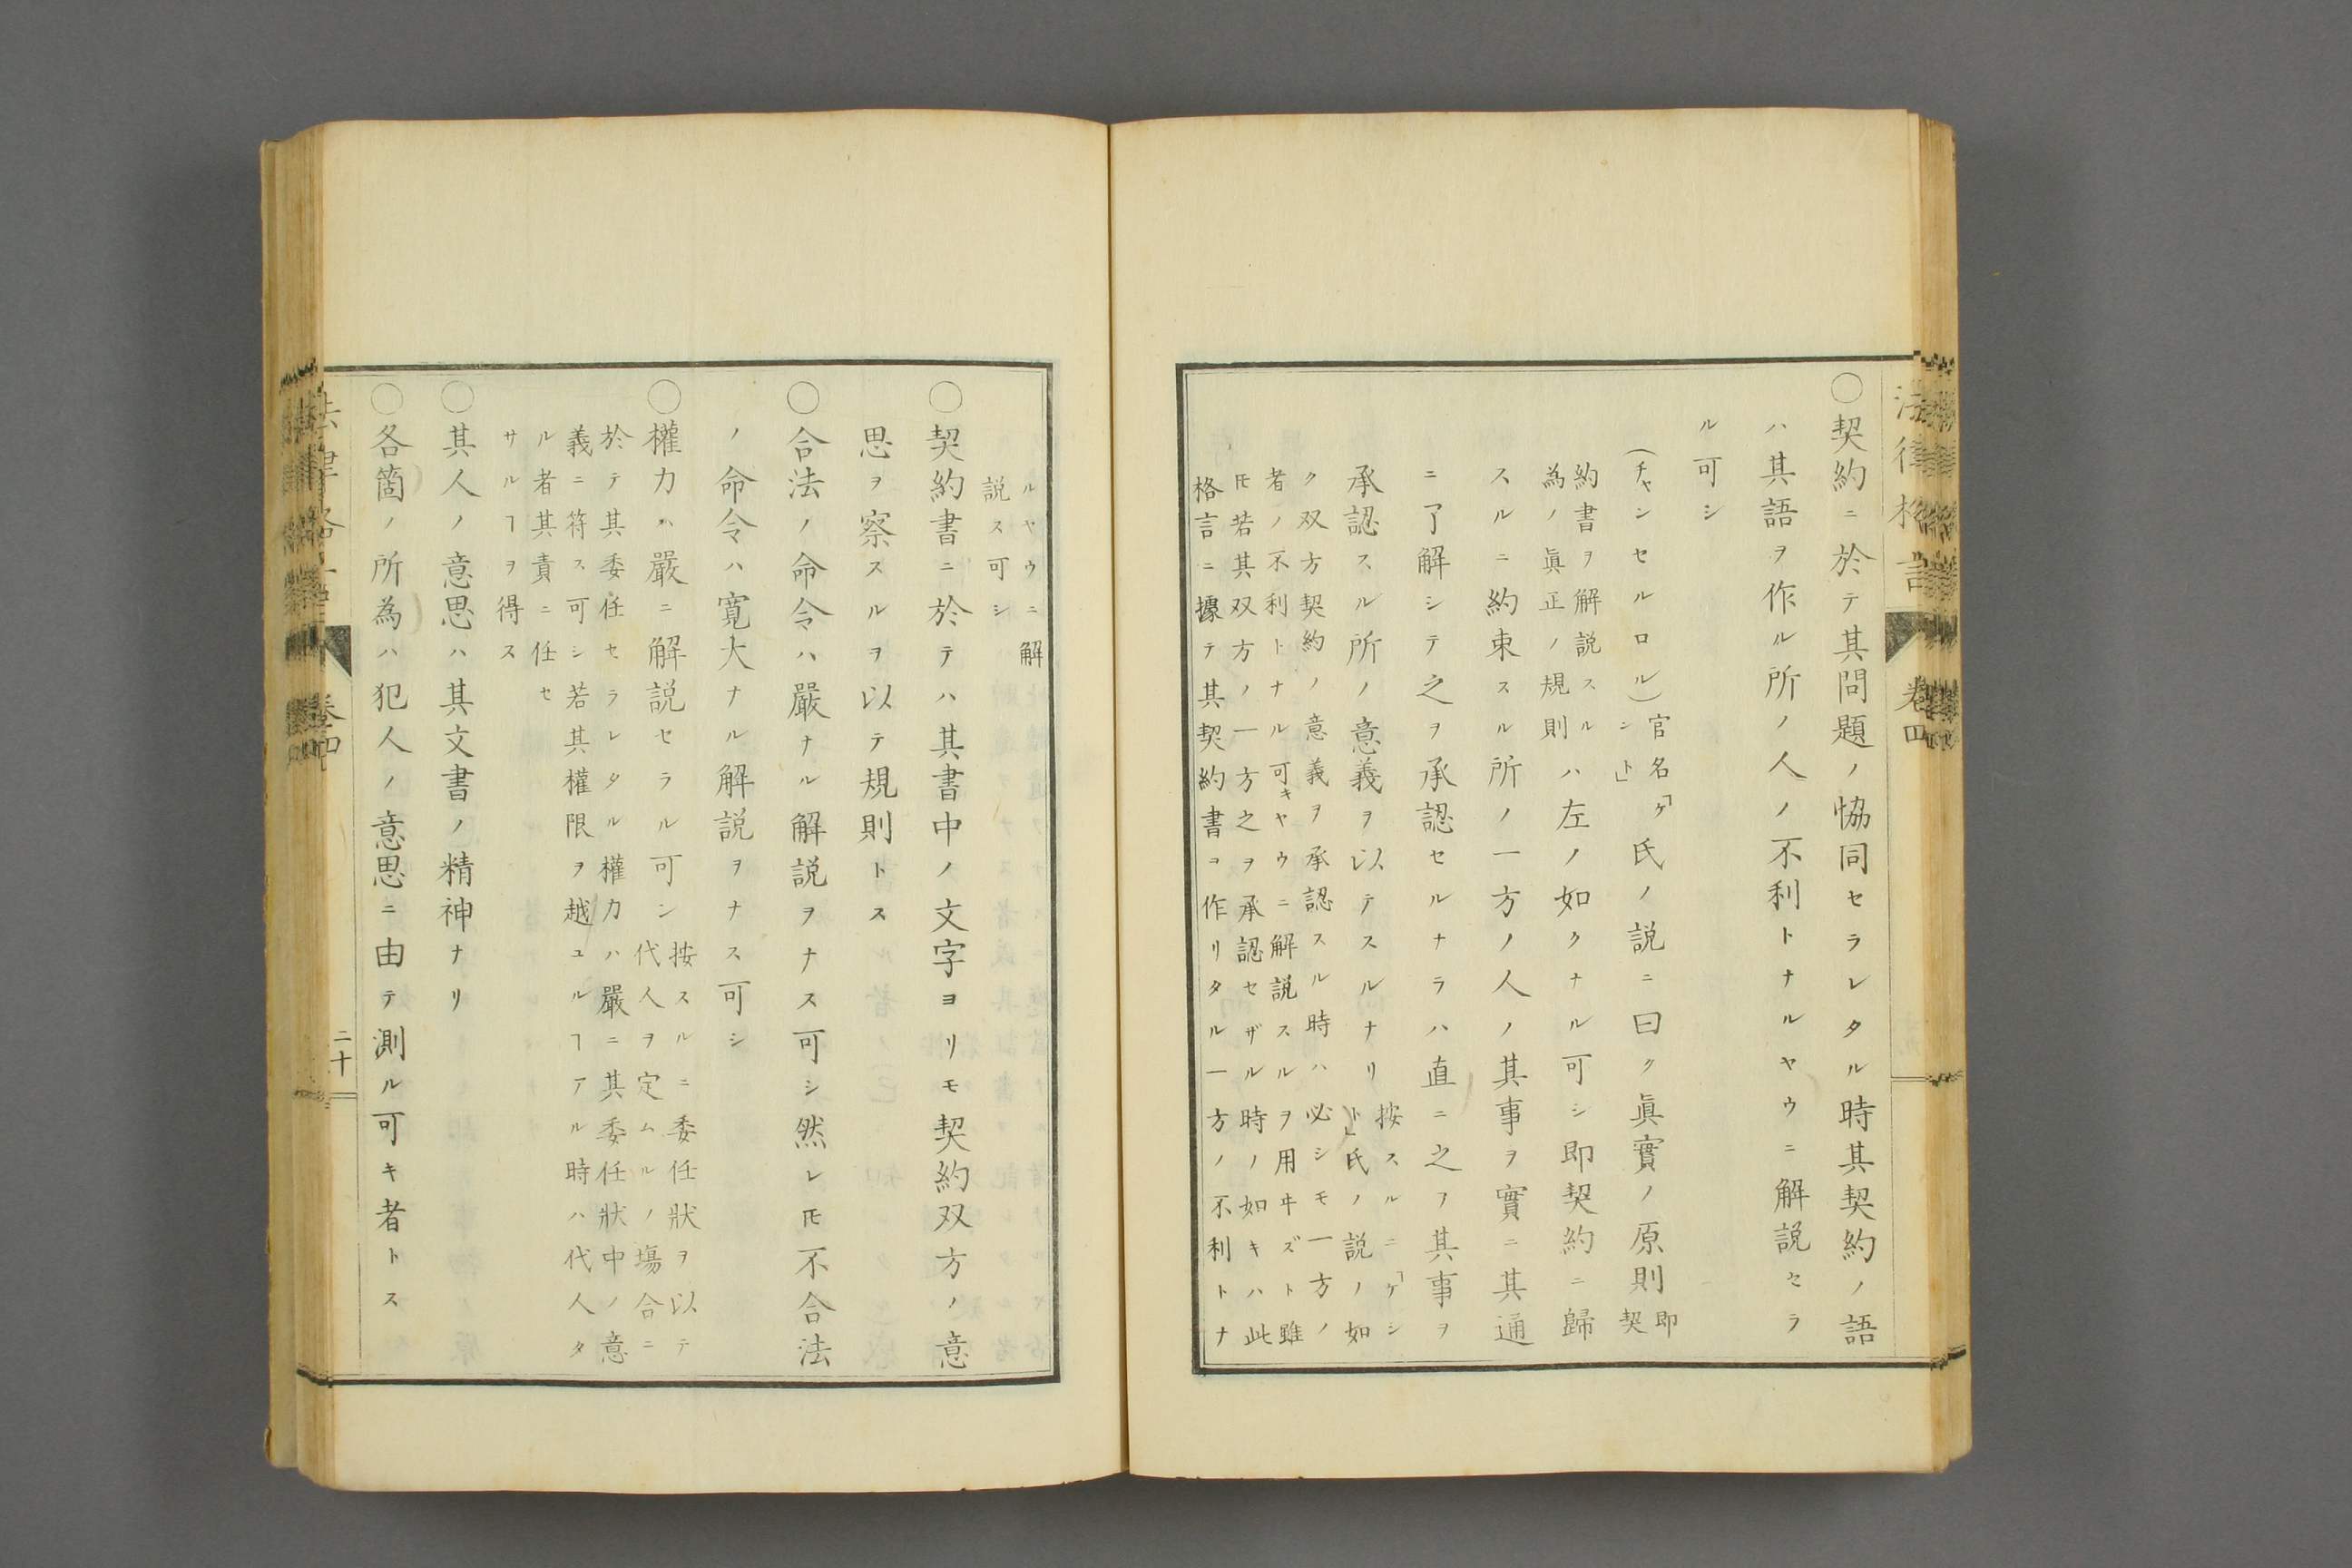 法律格言
卷四
○契約ニ於テ其問題ノ恊同セラレタル時其契約ノ語
ハ其語ヲ作ル所ノ人ノ不利トナルヤウニ解説セラ
ル可シ
(チャンセルロル)官名「ケシト」氏ノ説ニ曰ク眞實ノ原則即契
約書ヲ解説スル為ノ眞正ノ規則ハ左ノ如クナル可シ即契約ニ歸
スルニ約束スル所ノ一方ノ人ノ其事ヲ實ニ其通
ニ了解シテ之ヲ承認セルナラハ直ニ之フ其事ヲ
承認スル所ノ意義ヲ以テスルナリ按スルニ「ケシト」氏ノ説ノ如
ク双方契約ノ意義ヲ承認スル時ハ必シモ一方ノ
者ノ不利トナル可キヤウニ解説スルヲ用ヰズト雖
𪜈若其双方ノ一方之ヲ承認セザル時ノ如キハ此
格言ニ據テ其契約書コ作リタル一方ノ不利トナ
ルヤウニ解
説ス可シ
○契約書ニ於テハ其書中ノ文字ヨリモ契約双方ノ意
思ヲ察スルヲ以テ規則トス
○合法ノ命令ハ嚴ナル解説ヲナス可シ然レ𪜈不合法
ノ命令ハ寛大ナル解説ヲナス可シ
○權力ハ嚴ニ解説セラル可シ按スルニ委任狀ヲ以テ
代人ヲ定ムルノ塲合ニ
於テ其委任セラレタル權力ハ嚴ニ其委任狀中ノ意
義ニ符ス可シ若其權限ヲ越ユルヿアル時ハ代人タ
ル者其責ニ任セ
サルヿヲ得ス
○其人ノ意思ハ其文書ノ精神ナリ
○各箇ノ所為ハ犯人ノ意思ニ由テ測ル可キ者トス
卷四
二十